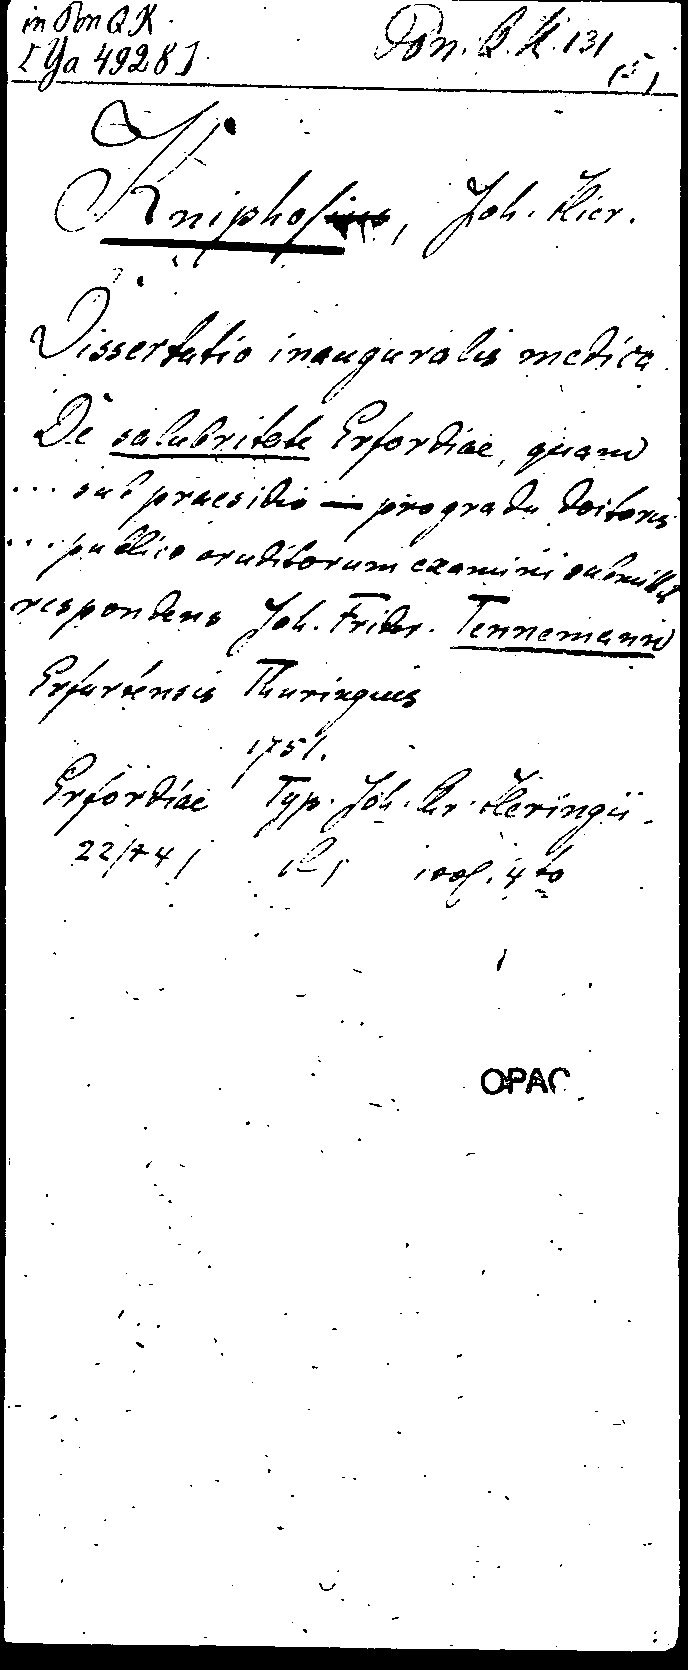 in Pon Q K.
[Ya 4928]
Pon. Q. K. 131
Kniphofius, Joh. Hier.
Dissertatio inauguralis medica
De salubritate Erfordiae, quam
... sub praesidio — pro gradu doctoris
... publico eruditorum examini submittit
respondens Joh. Frider. Tennemann
Erfurtensis Thuringus
1751.
Erfordiae Typ. Joh. Chr. Heringii.
4to
OPAC